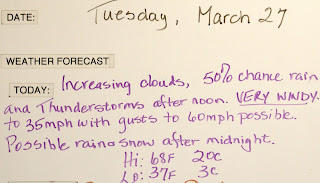 DATE: Tuesday, March 27
WEATHER FORECAST
TODAY: Increasing clouds, 50% chance rain
and Thunderstorms after noon. VERY WINDY.
to 35mph with gusts to 60mph possible.
Possible rain & snow after midnight.
Hi: 68F 20C
Lo: 37F 3C